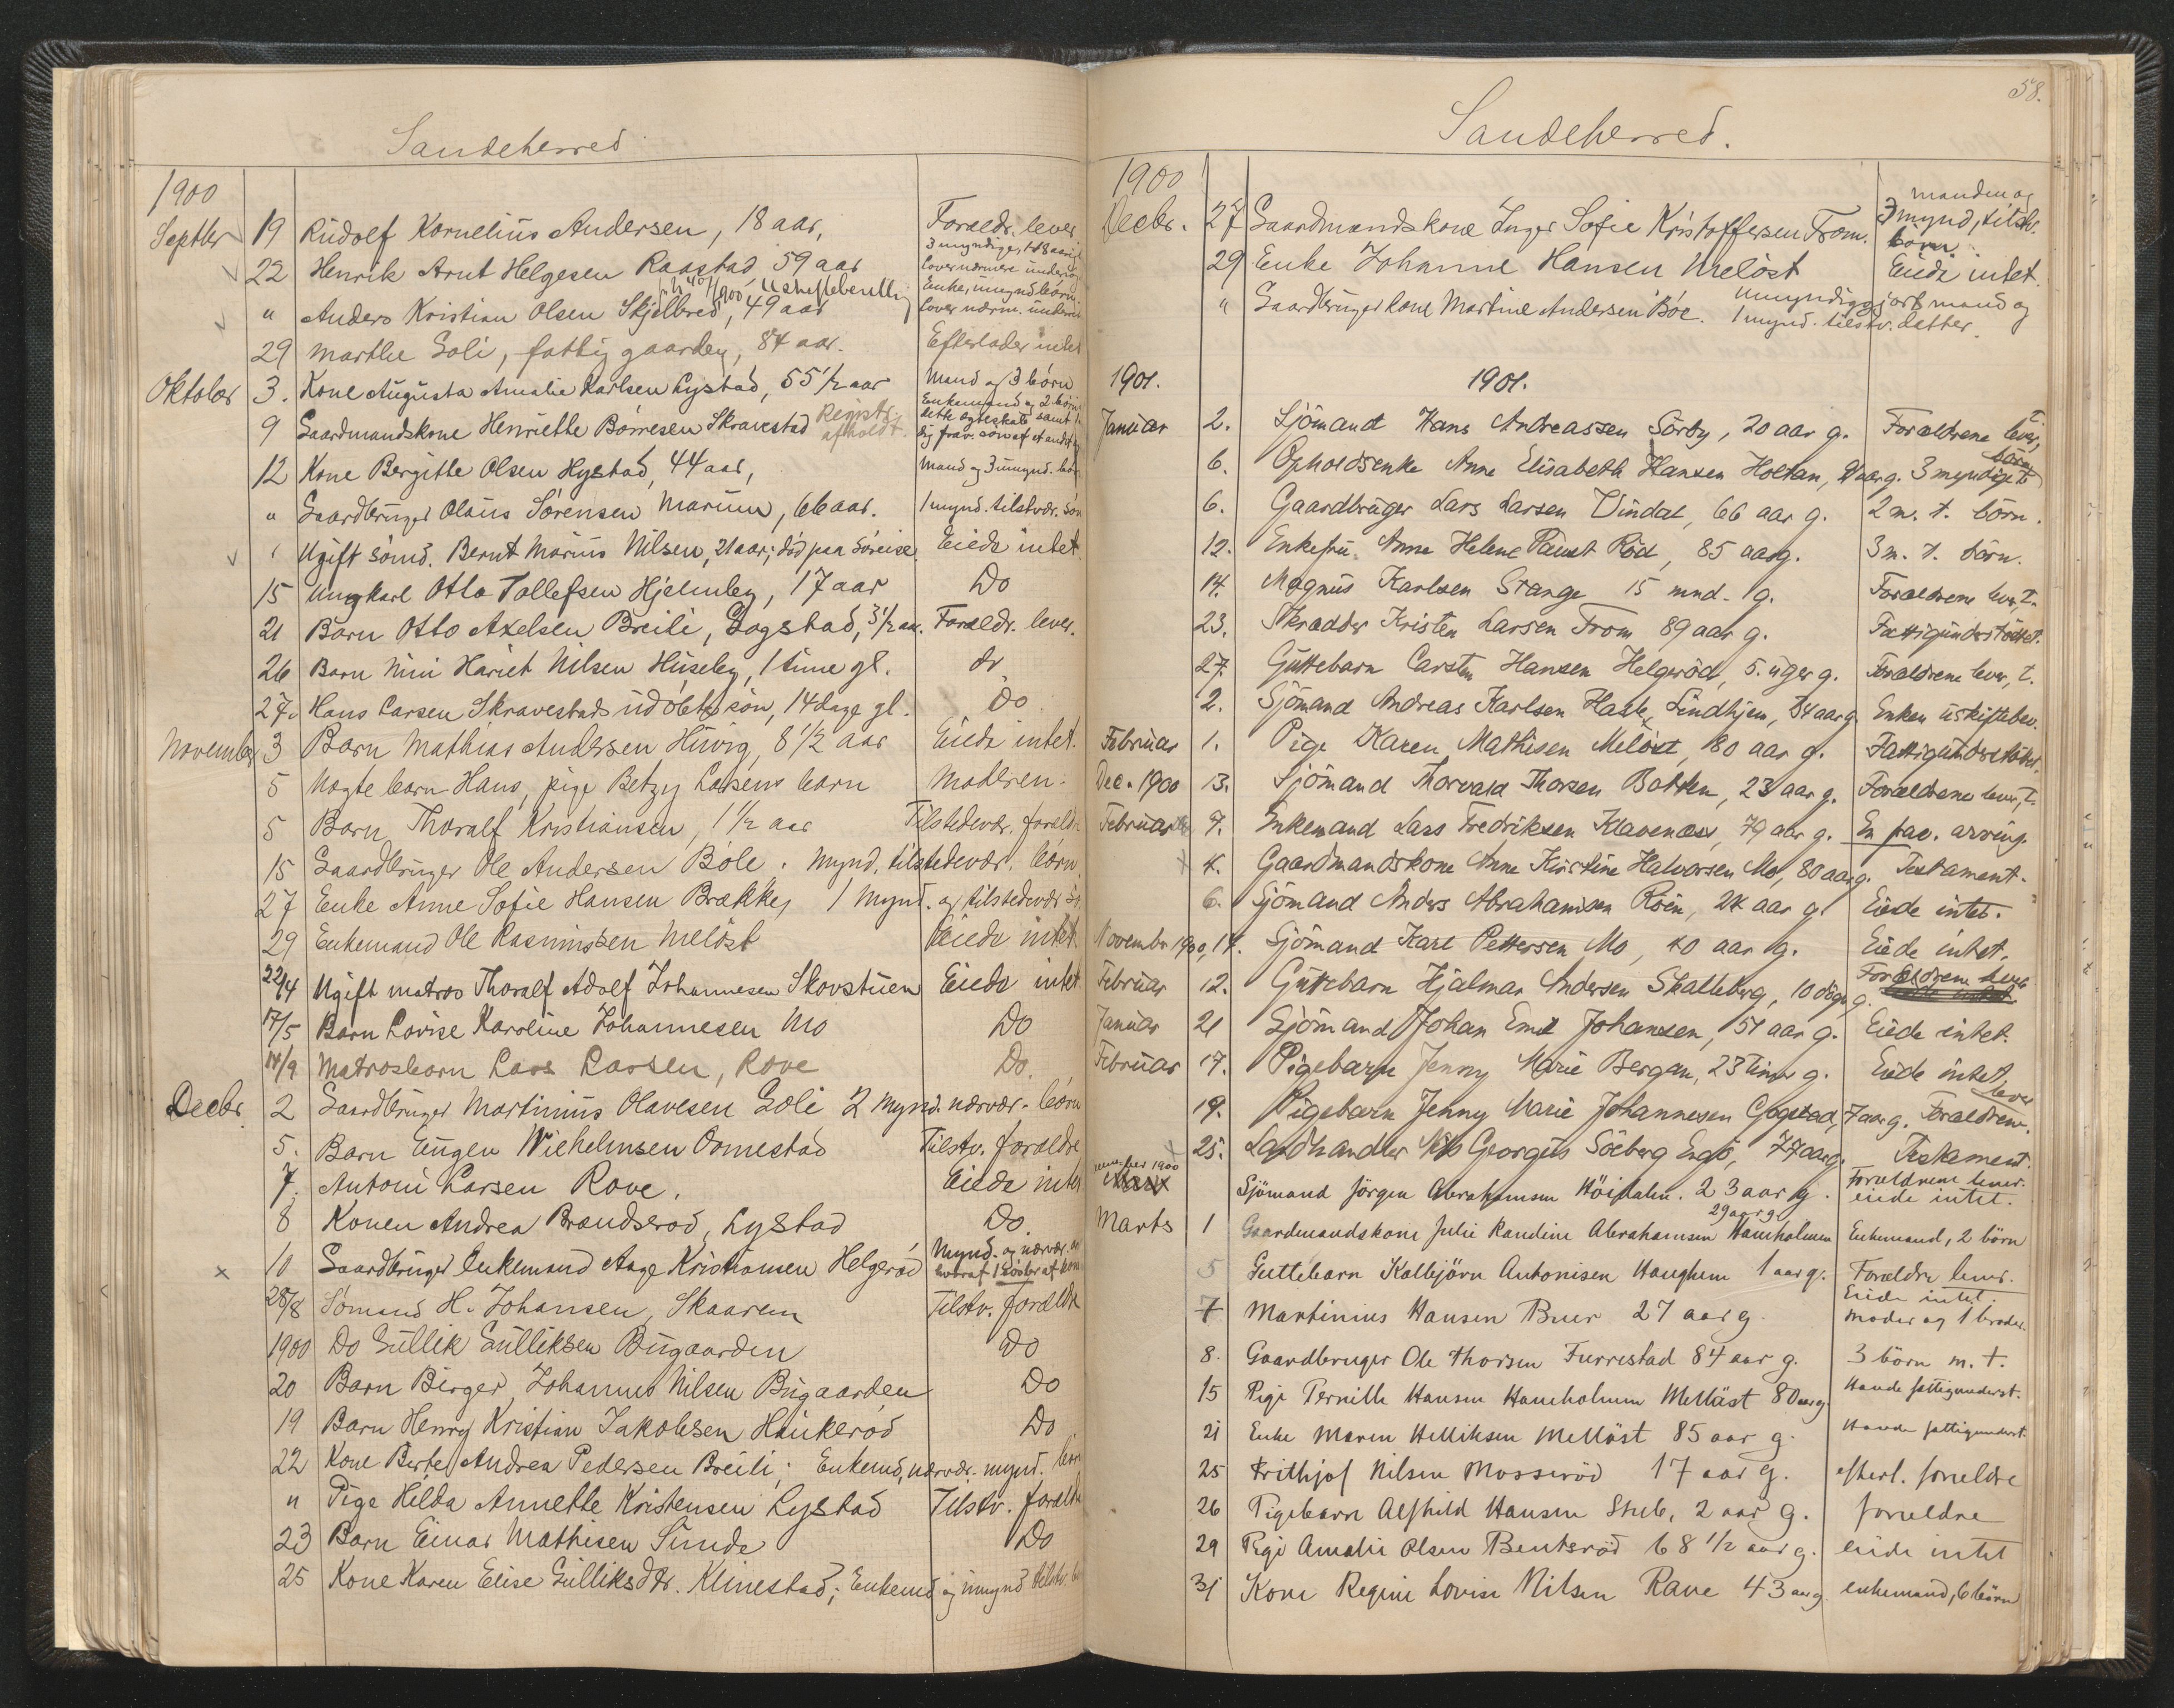 Sandeherred
1900
Septbr 19 Rudolf Kornelius Andersen, 18 aar, Forældr. lever
22 Henrik Arnt Helgesen Raastad, 59 aar 3 myndige, 1 18 aarig
lover nærmere underr
" Anders Kristian Olsen Skjelbred, 49 aar Enke, umynd børn
lover nærm. underr
29 Marthe Goli, fattiggaarden, 84 aar. Efterlader intet
Oktober 3. Kone Augusta Amalie Karlsen Lystad, 55 1/2 aar Mand og 3 børn
9 Gaardmandskone Henriette Børresen Skravestad Registr. afholdt. Enkemand og 2 børn
dette ægteskab samt
12 Kone Bergitte Olsen Hystad, 44 aar, Mand og 3 umynd. bør
" Gaardbruger Olaus Sørensen Marum, 66 aar. 1 mynd. tilstvær. søn
" Ugift sømd. Bernt Marius Nilsen, 21 aar; død paa Søreise. Eiede intet.
15 Ungkarl Otto Tollefsen Hjelmby, 17 aar Do
21 Barn Otto Axelsen Breili, Gogstad, 3 1/2 aar. Forældr. lever.
26 Barn Nini Hariet Nilsen Huseby, 1 time gl. do
27. Hans Larsen Skravestads udøbte søn, 14 dage gl. Do.
November 3 Barn Mathias Andersen Huvig, 8 1/2 aar Eiede intet.
5 Uægte barn Hans, pige Betzy Larsens barn Moderen.
5 Barn Thoralf Kristiansen, 1 1/2 aar Tilstedevær. foreldr
15 Gaardbruger Ole Andersen Bøle. Mynd. tilstedevær. børn
27 Enke Anne Sofie Hansen Brække, 1 Mynd. og tilstedevær
29 Enkemand Ole Rasmussen Meløst Eiede intet.
22/4 Ugift matros Thoralf Adolf Johannesen Skovstuen Eiede intet
17/5 Barn Lovise Karoline Johannesen Mo Do
14/9 Matrosbarn Lars Larsen, Rove Do.
Decbr. 2 Gaardbruger Martinius Olavesen Goli 2 Mynd. nærvær. børn
5. Barn Eugen Wilhelmsen Ormestad Tilstv. forældre
7. Antoni Larsen Rove. Eiede intet
8 Konen Andrea Brændsrod, Lystad Do.
10 Gaardbruger Enkemand Aage Kristiansen Helgerød Mynd. og nærvær.
28/8 Sømand H. Johansen, Skaaren Tilstv. foreldre
1900 Do Gullik Gulliksen Bugaarden Do
20 Barn Birger Johannes Nilsen Bugaarden Do
19 Barn Henry Kristian Jakobsen Haukerød Do
22 Kone Berte Andrea Pedersen Breili; Enkemd, nærvær. mynd. børn
" Pige Hilda Annette Kristensen Lystad Tilstv. foreldre
23 Barn Einar Mathisen Sunde Do
25 Kone Karen Elise Gulliksdtr. Klinestad; Enkemd og umynd tilstv.
58.
Sandeherred.
1900
Decbr. 27 Gaardmandskone Inger Sofie Kristoffersen From. manden og
3 mynd, tilstv.
børn.
29 Enke Johanne Hansen Meløst Eiede intet.
" Gaardbrugerkone Martine Andersen Bøe. Umyndiggjort mand og
1 mynd. tilstv. datter.
1901. 1901.
Januar 2. Sjömand Hans Andreassen Sörby, 20 aar g. Forældrene lever, t.
6. Opholdsenke Anne Elisabeth Hansen Holtan, aar g. 3 myndige t. börn
6. Gaardbruger Lars Larsen Vindal, 66 aar g. 2 m. t. börn.
12. Enkefru Anne Helene Paust Röd, 85 aar g. 3 m. t. börn.
14. Magnus Karlsen Strange 15 mnd. g. Forældrene lever, t.
23. Skrædder Kristen Larsen From 89 aar g. Fattigunderstöttet.
27. Guttebarn Carsten Hansen Helgeröd, 5 uger g. Forældrene lever, t.
2. Sjömand Andreas Karlsen Hasle, Lindhjem, 34 aar g. Enken uskiftebev.
Februar 1. Pige Karen Mathisen Melöst, 80 aar g. Fattigunderstöttet.
Dec. 1900 13. Sjömand Thorvald Thorsen Bakken, 23 aar g. Forældrene lever, t.
Februar 7. Enkemand Lars Fredriksen Klavenæs, 79 aar g. En frav. arving.
4. Gaardmandskone Anne Kirstine Halvorsen Mo, 80 aar g. Testament.
6. Sjömand Anders Abrahamsen Röen, 24 aar g. Eiede intet.
November 1900, 14. Sjömand Karl Pettersen Mo, 40 aar g. Eiede intet.
Februar 12. Guttebarn Hjalmar Andersen Skalleberg, 10 döge g. Forældrene lever
Januar 21 Sjömand Johan Emil Johansen, 51 aar g. Eiede intet.
Februar 17. Pigebarn Jenny Marie Bergan, 23 timer g. Eiede intet,
19. Pigebarn Jenny Marie Johannesen Gogstad, 7 aar g. Forældrene lever
25. Landhandler Nils Georgius Söeberg Engö, 77 aar g. Testament.
Sjömand Jörgen Abrahamsen Höidalen. 23 aar g. Forældrene lever.
eiede intet.
Marts 1 Gaardmandskone Julie Randine Abrahamsen Hauholmen 29 aar g. Enkemand, 2 börn
5 Guttebarn Kolbjörn Antonisen Haughem 1 aar g. Forældre lever.
7 Martinius Hansen Buer 27 aar g. Eiede intet.
Moder og 1 broder.
8. Gaardbruger Ole Thorsen Furrestad 84 aar g. 3 börn m. t.
15 Pige Pernille Hansen Hauholmen Melläst 80 aar g. Havde fattigunderst.
21 Enke Maren Helliksen Melläst 85 aar g. Havde fattigunderst.
25 Frithjof Nilsen Mosseröd 17 aar g. efterl. forældre
26 Pigebarn Alfhild Hansen Stub, 2 aar g. forældre
29 Pige Amalie Olsen Bentsröd 68 1/2 aar g. eiede intet
31 Kone Regine Lovise Nilsen Rave 43 aar g. enkemand, 6 börn